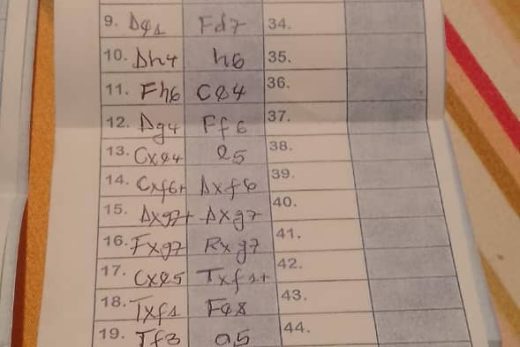 9. De1 Fd7 34.
10. Dh4 h6 35.
11. Fh6 Ce4 36.
12. Dg4 Ff6 37.
13. Cxe4 e5 38.
14. Cxf6+ Dxf6 39.
15. Dxg7+ Dxg7 40.
16. Fxg7 Rxg7 41.
17. Cxe5 Txf1+ 42.
18. Txf1 Fe8 43.
19. Tf3 a5 44.